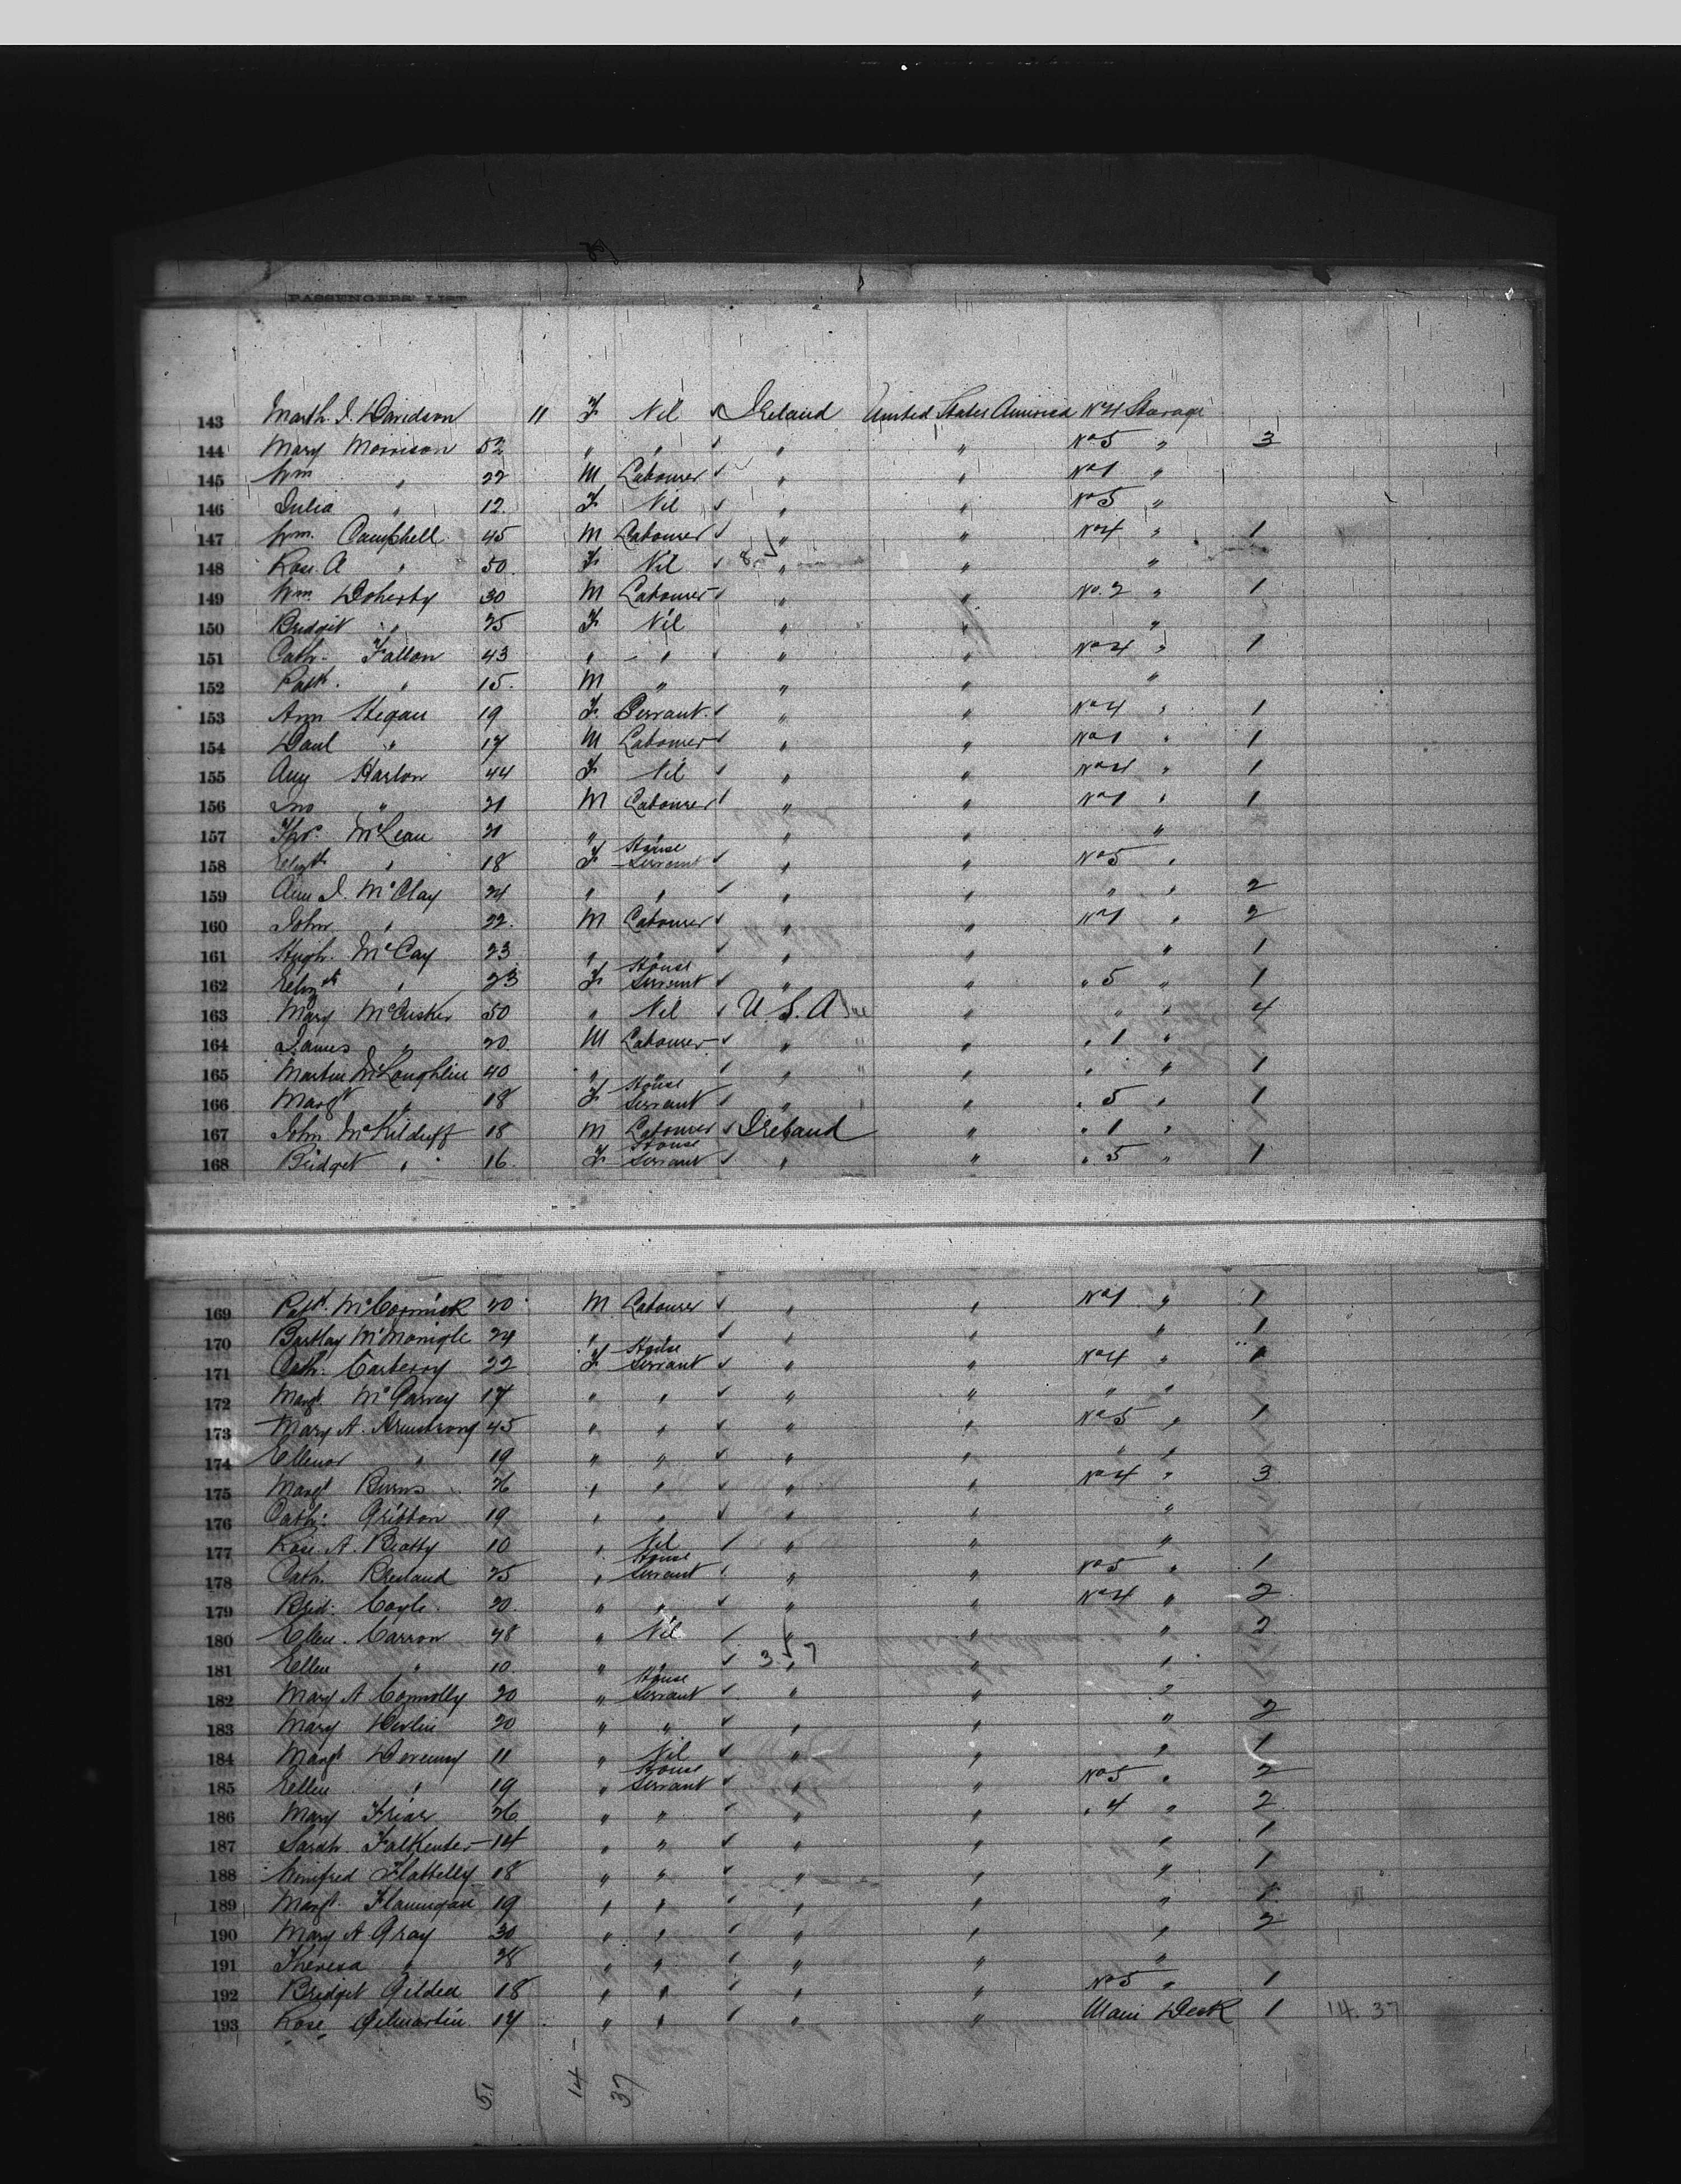 PASSENGERS' LIST
143 Marth. J. Davidson 11 F Nil Ireland United States America No 4 Steerage
144 Mary Morrison 52 " " " " No 5 " 3
145 Wm " 22 M Labourer " " No 1 "
146 Julia " 12 F Nil " " No 5 "
147 Wm. Campbell 45 M Labourer " " No 4 " 1
148 Rose A " 50 F Nil " " "
149 Wm Doherty 30 M Labourer " " No. 2 " 1
150 Bridgit " 25 F Nil " " "
151 Cath. Fallon 43 " " " " No 4 " 1
152 Patk. " 15 M " " " "
153 Ann Hegan 19 F Servant " " No 4 " 1
154 Danl " 17 M Labourer " " No 1 " 1
155 Any Harlon 44 F Nil " " No 4 " 1
156 Jno " 21 M Labourer " " No 1 " 1
157 Thos. McLean 21 " " " " "
158 Elizth " 18 F House Servant " " No 5 "
159 Ann J. McClay 24 " " " " " " 2
160 John " 22 M Labourer " " No 1 " 2
161 Hugh McCay 23 " " " " " 1
162 Elizth " 23 F House Servant " " " 5 " 1
163 Mary McCusker 50 " Nil U.S.A " " " 4
164 James " 20 M Labourer " " " 1 "
165 Martin McLoughlin 40 " " " " " " 1
166 Margt " 18 F House Servant " " " 5 " 1
167 John McKilduff 18 M Labourer Ireland " " 1 "
168 Bridget " 16 F House Servant " " " 5 " 1
169 Patk. McCormick 20 M Labourer " " No 1 " 1
170 Bartley McMonigle 24 " " " " 1
171 Cath. Carberry 22 F House Servant " " No 4 " 1
172 Margt. McGarvey 17 " " " " " "
173 Mary A. Armstrong 45 " " " " No 5 " 1
174 Ellenor " 19 " " " " " "
175 Margt Burns 26 " " " " No 4 " 3
176 Cath. Gribbon 19 " " " " "
177 Rose A. Beatty 10 " Nil " " "
178 Cath. Breeland 25 " House Servant " " No 5 " 1
179 Brid. Coyle 20 " " " " No 4 " 2
180 Ellen Carron 48 " Nil " " " 2
181 Ellen " 10 " " 3 " 7 " "
182 Mary A Connolly 20 " House Servant " " "
183 Mary Devlin 20 " " " " " 2
184 Margt Devenny 11 " Nil " " " 1
185 Ellen " 19 " House Servant " " No 5 " 2
186 Mary Friar 26 " " " " " 4 " 2
187 Sarah Falkender 14 " " " " " 1
188 Winifred Flattelly 18 " " " " " 1
189 Margt. Flannigan 19 " " " " " 1
190 Mary A Gray 30 " " " " " 2
191 Theresa " 28 " " " " "
192 Bridget Gilded 18 " " " " No 5 " 1
193 Rose Gilmartin 17 " " " " Main Deck 1 14. 37
51 14 37